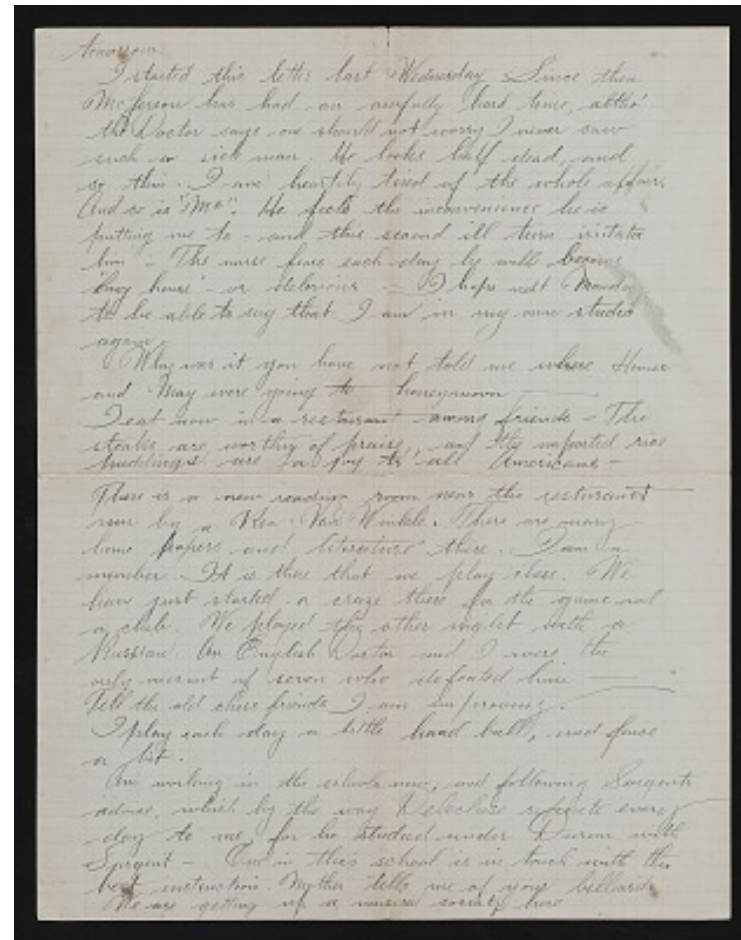 Tomorrow.
I started this letter last Wednesday. Since then
McPherson has had an awfully hard time, altho'
the Doctor says one should not worry I never saw
such a sick man. He looks half dead, and
so thin. I am heartily tired of the whole affair.
And so is "Mc". He feels the inconvenience he is
putting me to - and this second ill turn irritates
him - The nurse fears each day he will become
"bug house" - or delerious - I hope next Monday
to be able to say that I am in my own studio
again.
Why was it you have not told me where Homer
and May were going to honeymoon
I eat now in a restaurant among friends - The
steaks are worthy of praise, and the imported rice
puddings are a joy to all Americans -
There is a new reading room near the resturant
run by a Rev. Van Winkle. There are many
home papers and literature there. I am a
member. It is there that we play chess. We
have just started a craze there for the game and
a club. We played the other night with a
Russian. An English Doctor and I were the
only ones out of seven who defeated him
Tell the old chess friends I am improving.
I play each day a little hand ball, and fence
a bit.
Am working in the schools now, and following Sargents
advise, which by the way Delecluse repeats every
day to me, for he studied under Duran with
Sargent - One in this school is in touch with the
best instruction. Mother tells me of your billiards.
We are getting up a musical society here